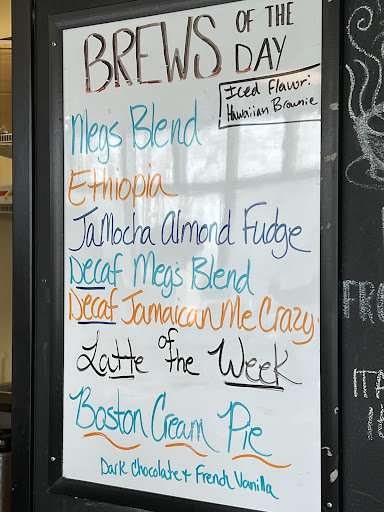 BREWS OF THE DAY
Iced Flavor:
Hawaiian Brownie
Megs Blend
Ethiopia
JaMocha Almond Fudge
Decaf Meg's Blend
Decaf Jamaican Me Crazy
Latte of the Week
Boston Cream Pie
Dark Chocolate + French Vanilla
FRO